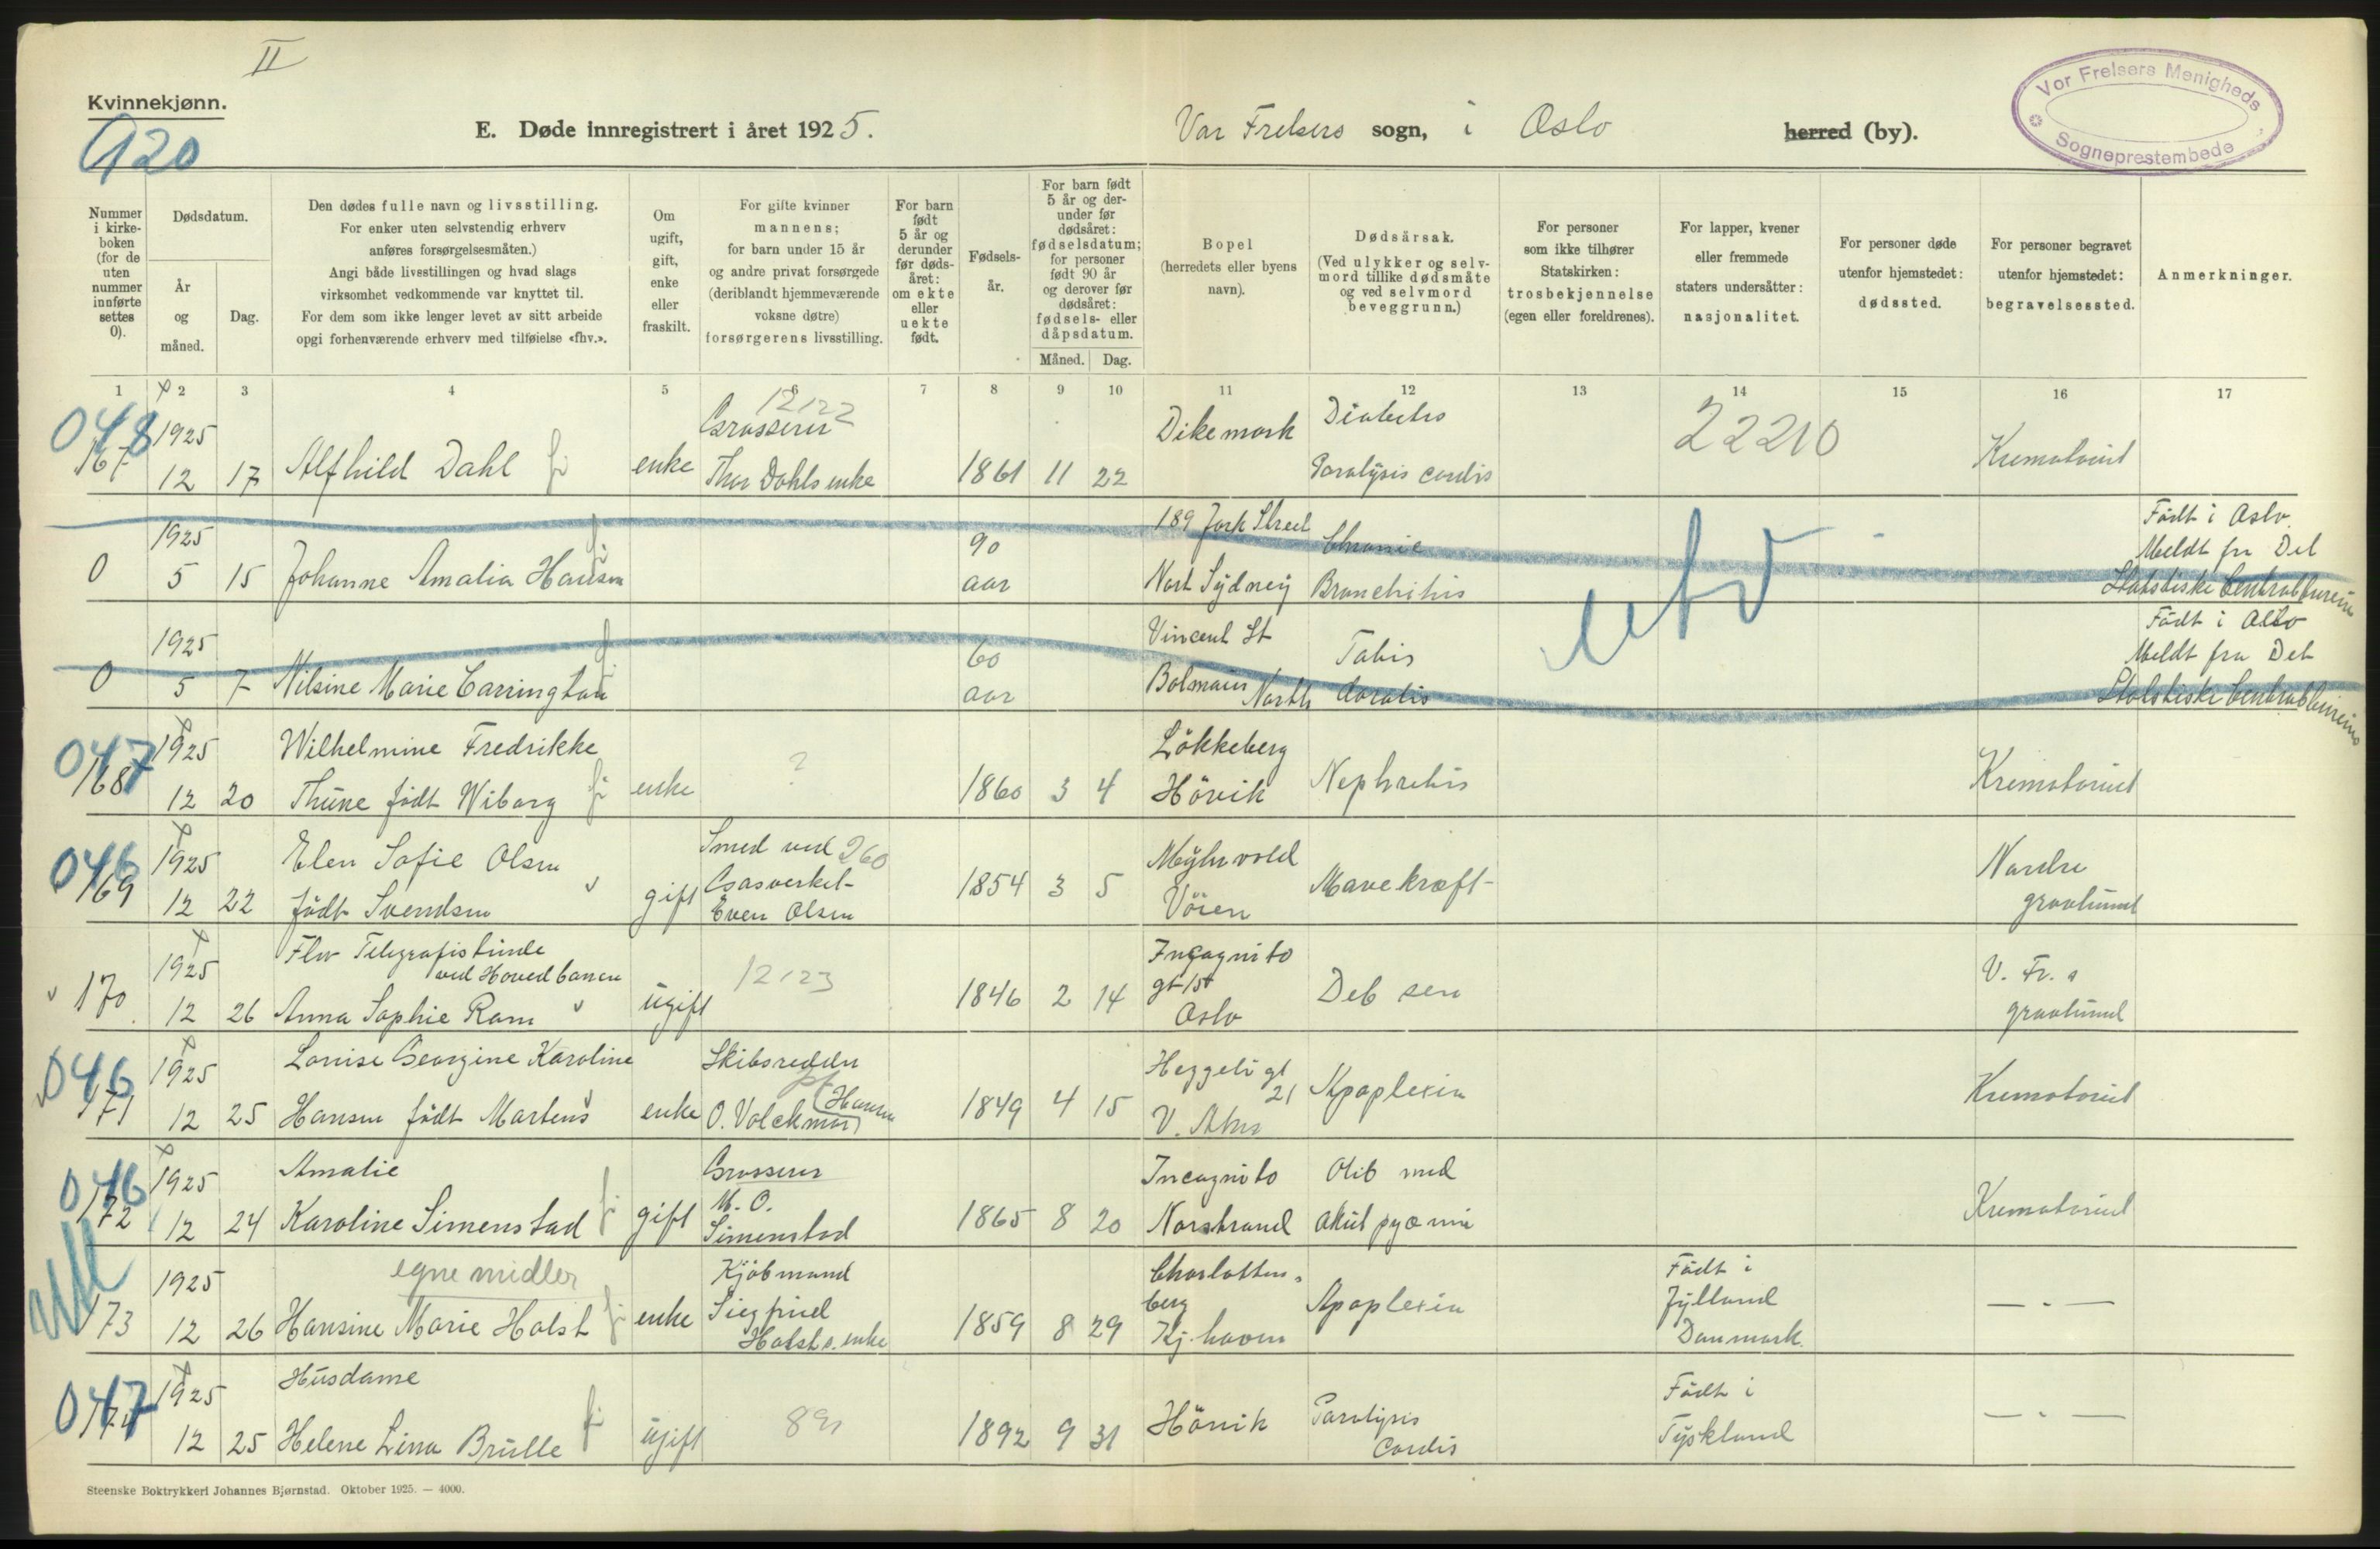 II
Kvinnekjønn.
A20
E. Døde innregistrert i året 1925. Vår Frelsers sogn, i Oslo herred (by).
Vor Frelsers Menigheds
Sogneprestembede
Nummer i kirke-boken (for de uten nummer innførte settes 0).
Dødsdatum.
År og måned.
Dag.
Den dødes fulle navn og livsstilling.
For enker uten selvstendig erhverv
anføres forsørgelsesmåten.)
Angi både livsstillingen og hvad slags
virksomhet vedkommende var knyttet til.
For dem som ikke lenger levet av sitt arbeide
opgi forhenværende erhverv med tilføielse «fhv.».
Om ugift, gift, enke eller fraskilt.
For gifte kvinner
mannens;
for barn under 15 år
og andre privat forsørgede
(deriblandt hjemmeværende
voksne døtre)
forsørgerens livsstilling.
For barn født 5 år og derunder før døds-året: om ekte eller uekte født.
Fødsels-år.
For barn født 5 år og der-under før dødsåret: fødselsdatum; for personer født 90 år og derover før dødsåret: fødsels- eller dåpsdatum.
Måned. Dag.
Bopel
(herredets eller byens
navn).
Dødsårsak.
(Ved ulykker og selv-
mord tillike dødsmåte
og ved selvmord
beveggrunn.)
For personer
som ikke tilhører
Statskirken:
trosbekjennelse
(egen eller foreldrenes).
For lapper, kvener
eller fremmede
staters undersåtter:
nasjonalitet.
For personer døde
utenfor hjemstedet:
dødssted.
For personer begravet
utenfor hjemstedet:
begravelsessted.
Anmerkninger.
1 2 3 4 5 6 7 8 9 10 11 12 13 14 15 16 17
048 1925 12122 Grosserer Dikemark Diabetes 22210
167 12 17 Alfhild Dahl enke Thor Dahls enke 1861 11 22 Paralysis cordis Krematoriet
1925 90 189 York Street Chronic Født i Oslo.
0 5 15 Johanne Amalia Hansen aar Nort Sydney Bronchitis Meldt fra Det
Statistiske Centralbureau
1925 60 Vincent St Tabis Født i Oslo
0 5 7 Nilsine Marie Carrington aar Balmain North doralis Meldt fra Det
Statistiske Centralbureau
047 1925 Wilhelmine Fredrikke ? Løkkeberg
168 12 20 Thune født Wiborg enke 1860 3 4 Høvik Nephritis Krematoriet
046 1925 Elen Sofie Olsen Smed ved 260
169 12 22 født Svendsen gift Gasverket Even Olsen 1854 3 5 Vøien Mavekræft Nordre gravlund
1925 Fhv Telegrafistinde ved Hovedbanen 12123 Incognito gt 15
170 12 26 Anna Sophie Ram ugift 1846 2 14 Oslo Deb sen V. Fr. s gravlund
046 1925 Louise Georgine Karoline Skibsreder Heggeli gt 21
171 12 25 Hansen født Martens enke O. Volckmar Hansen 1849 4 15 V. Aker Apoplexia Krematoriet
046 1925 Amalie Grosserer Incognito Otit med
172 12 24 Karoline Simenstad gift M. O. Simenstad 1865 8 20 Norstrand akut pyæmi Krematoriet
1925 egne midler Kjøbmand Charlotten-berg Født i
173 12 26 Hansine Marie Holst enke Siegfried Holst s. enke 1859 8 29 Kj.havn Apoplexia Jylland Danmark — „ —
047 1925 Husdame Født i
174 12 25 Helene Lina Brulle ugift 1892 9 31 Høvik Paralysis Cordis Tyskland — „ —
Steenske Boktrykkeri Johannes Bjørnstad. Oktober 1925. — 4000.